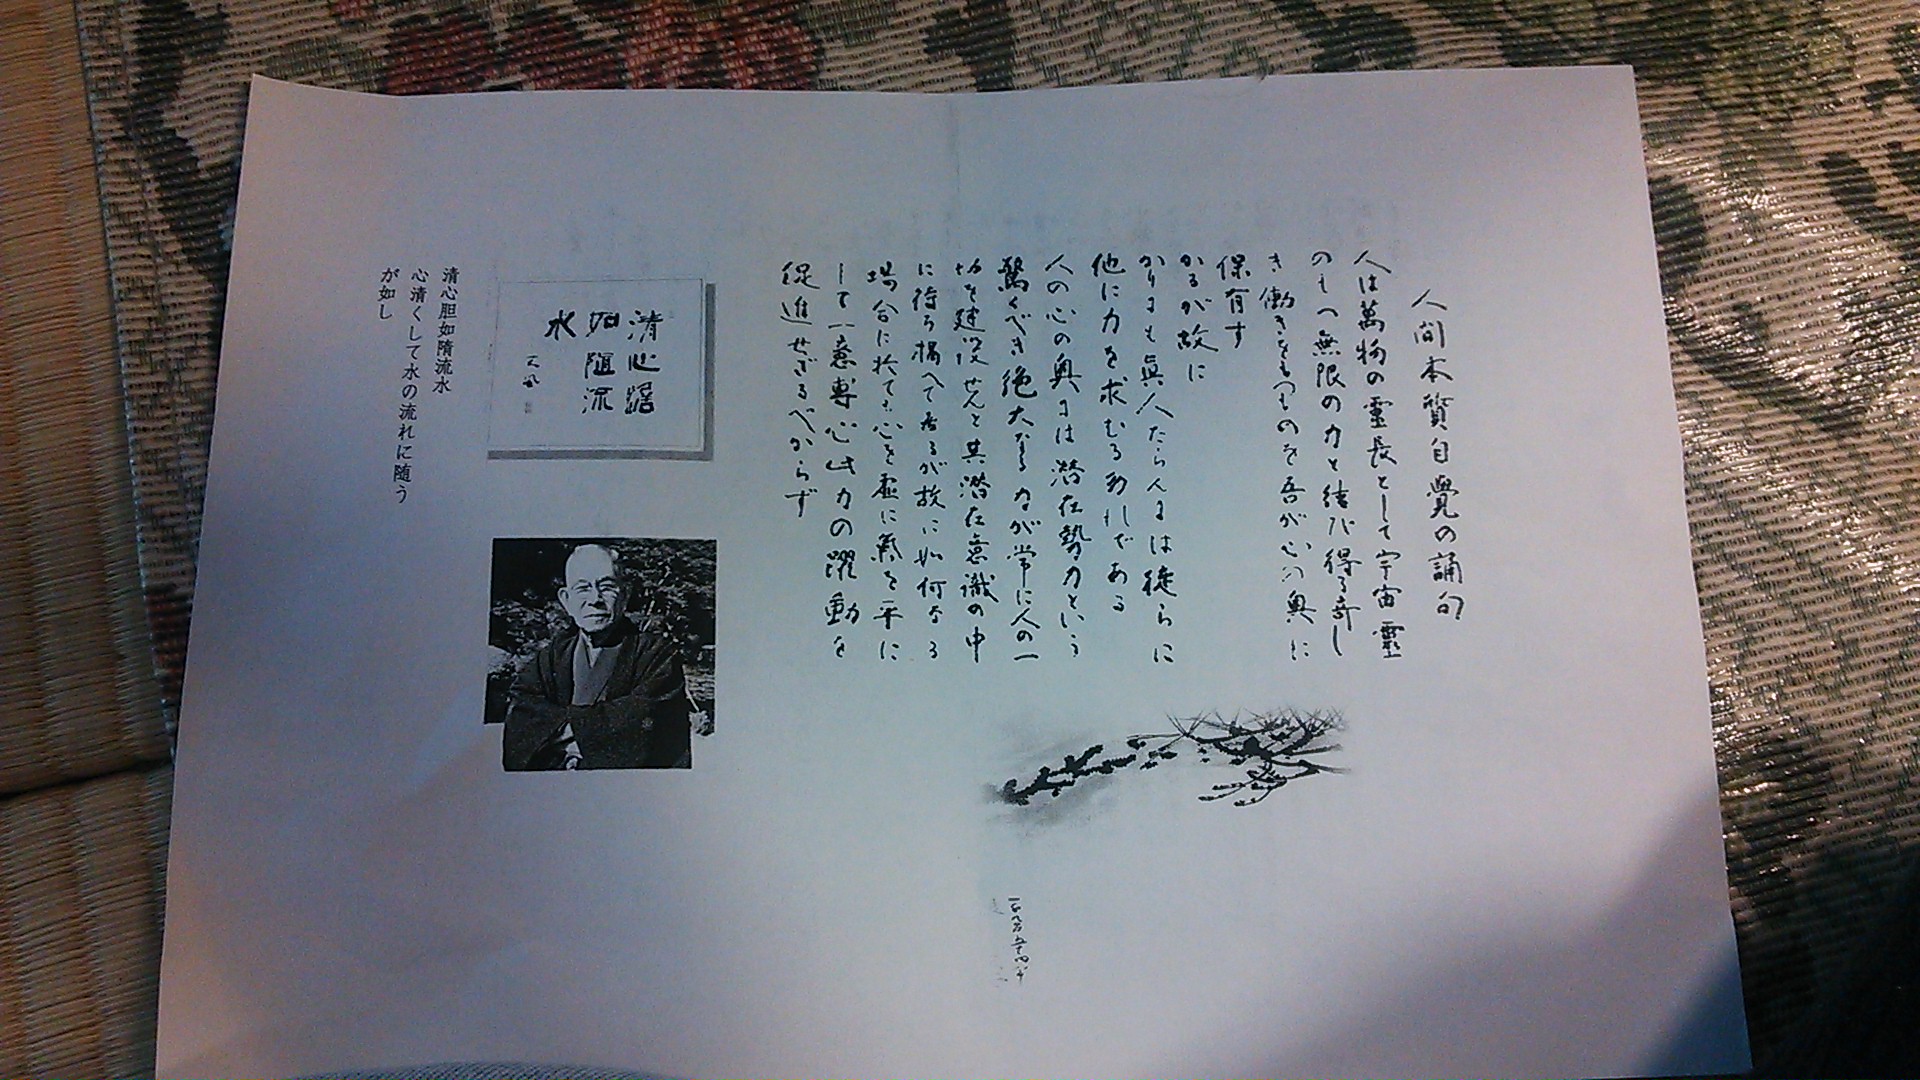 人間本質自覺の誦句
人は萬物の霊長として宇宙霊
のもつ無限の力と結び得る奇し
き働きをもつものを吾が心の奥に
保有す
かるが故に
かりにも眞人たらんには徒らに
他に力を求むる勿れである
人の心の奥には潜在勢力という
驚くべき絶大なる力が常に人の一
切を建設せんと其潜在意識の中
に待ち構へて居るが故に如何なる
場合に於ても心を虚に氣を平に
して一意専心此力の躍動を
促進せざるべからず
清心
如随流
水
天風
清心胆如隋流水
心清くして水の流れに随う
が如し